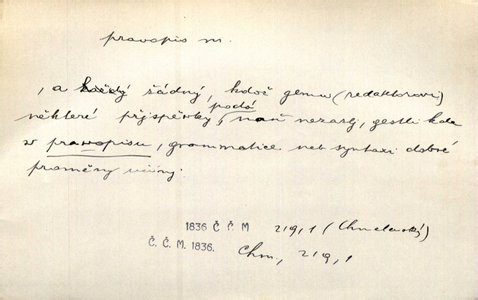 pravopis m.
, a žádný, kdož gemu (redaktorovi)
některé přjspěvky podá, naň nezasl, gestli kde
w prawopisu, grammatice neb syntaxi dobré
proměny učiny.
1836 Č Č M 219,1 (Chmelenský)
Č. Č. M. 1836. Chm, 219,1